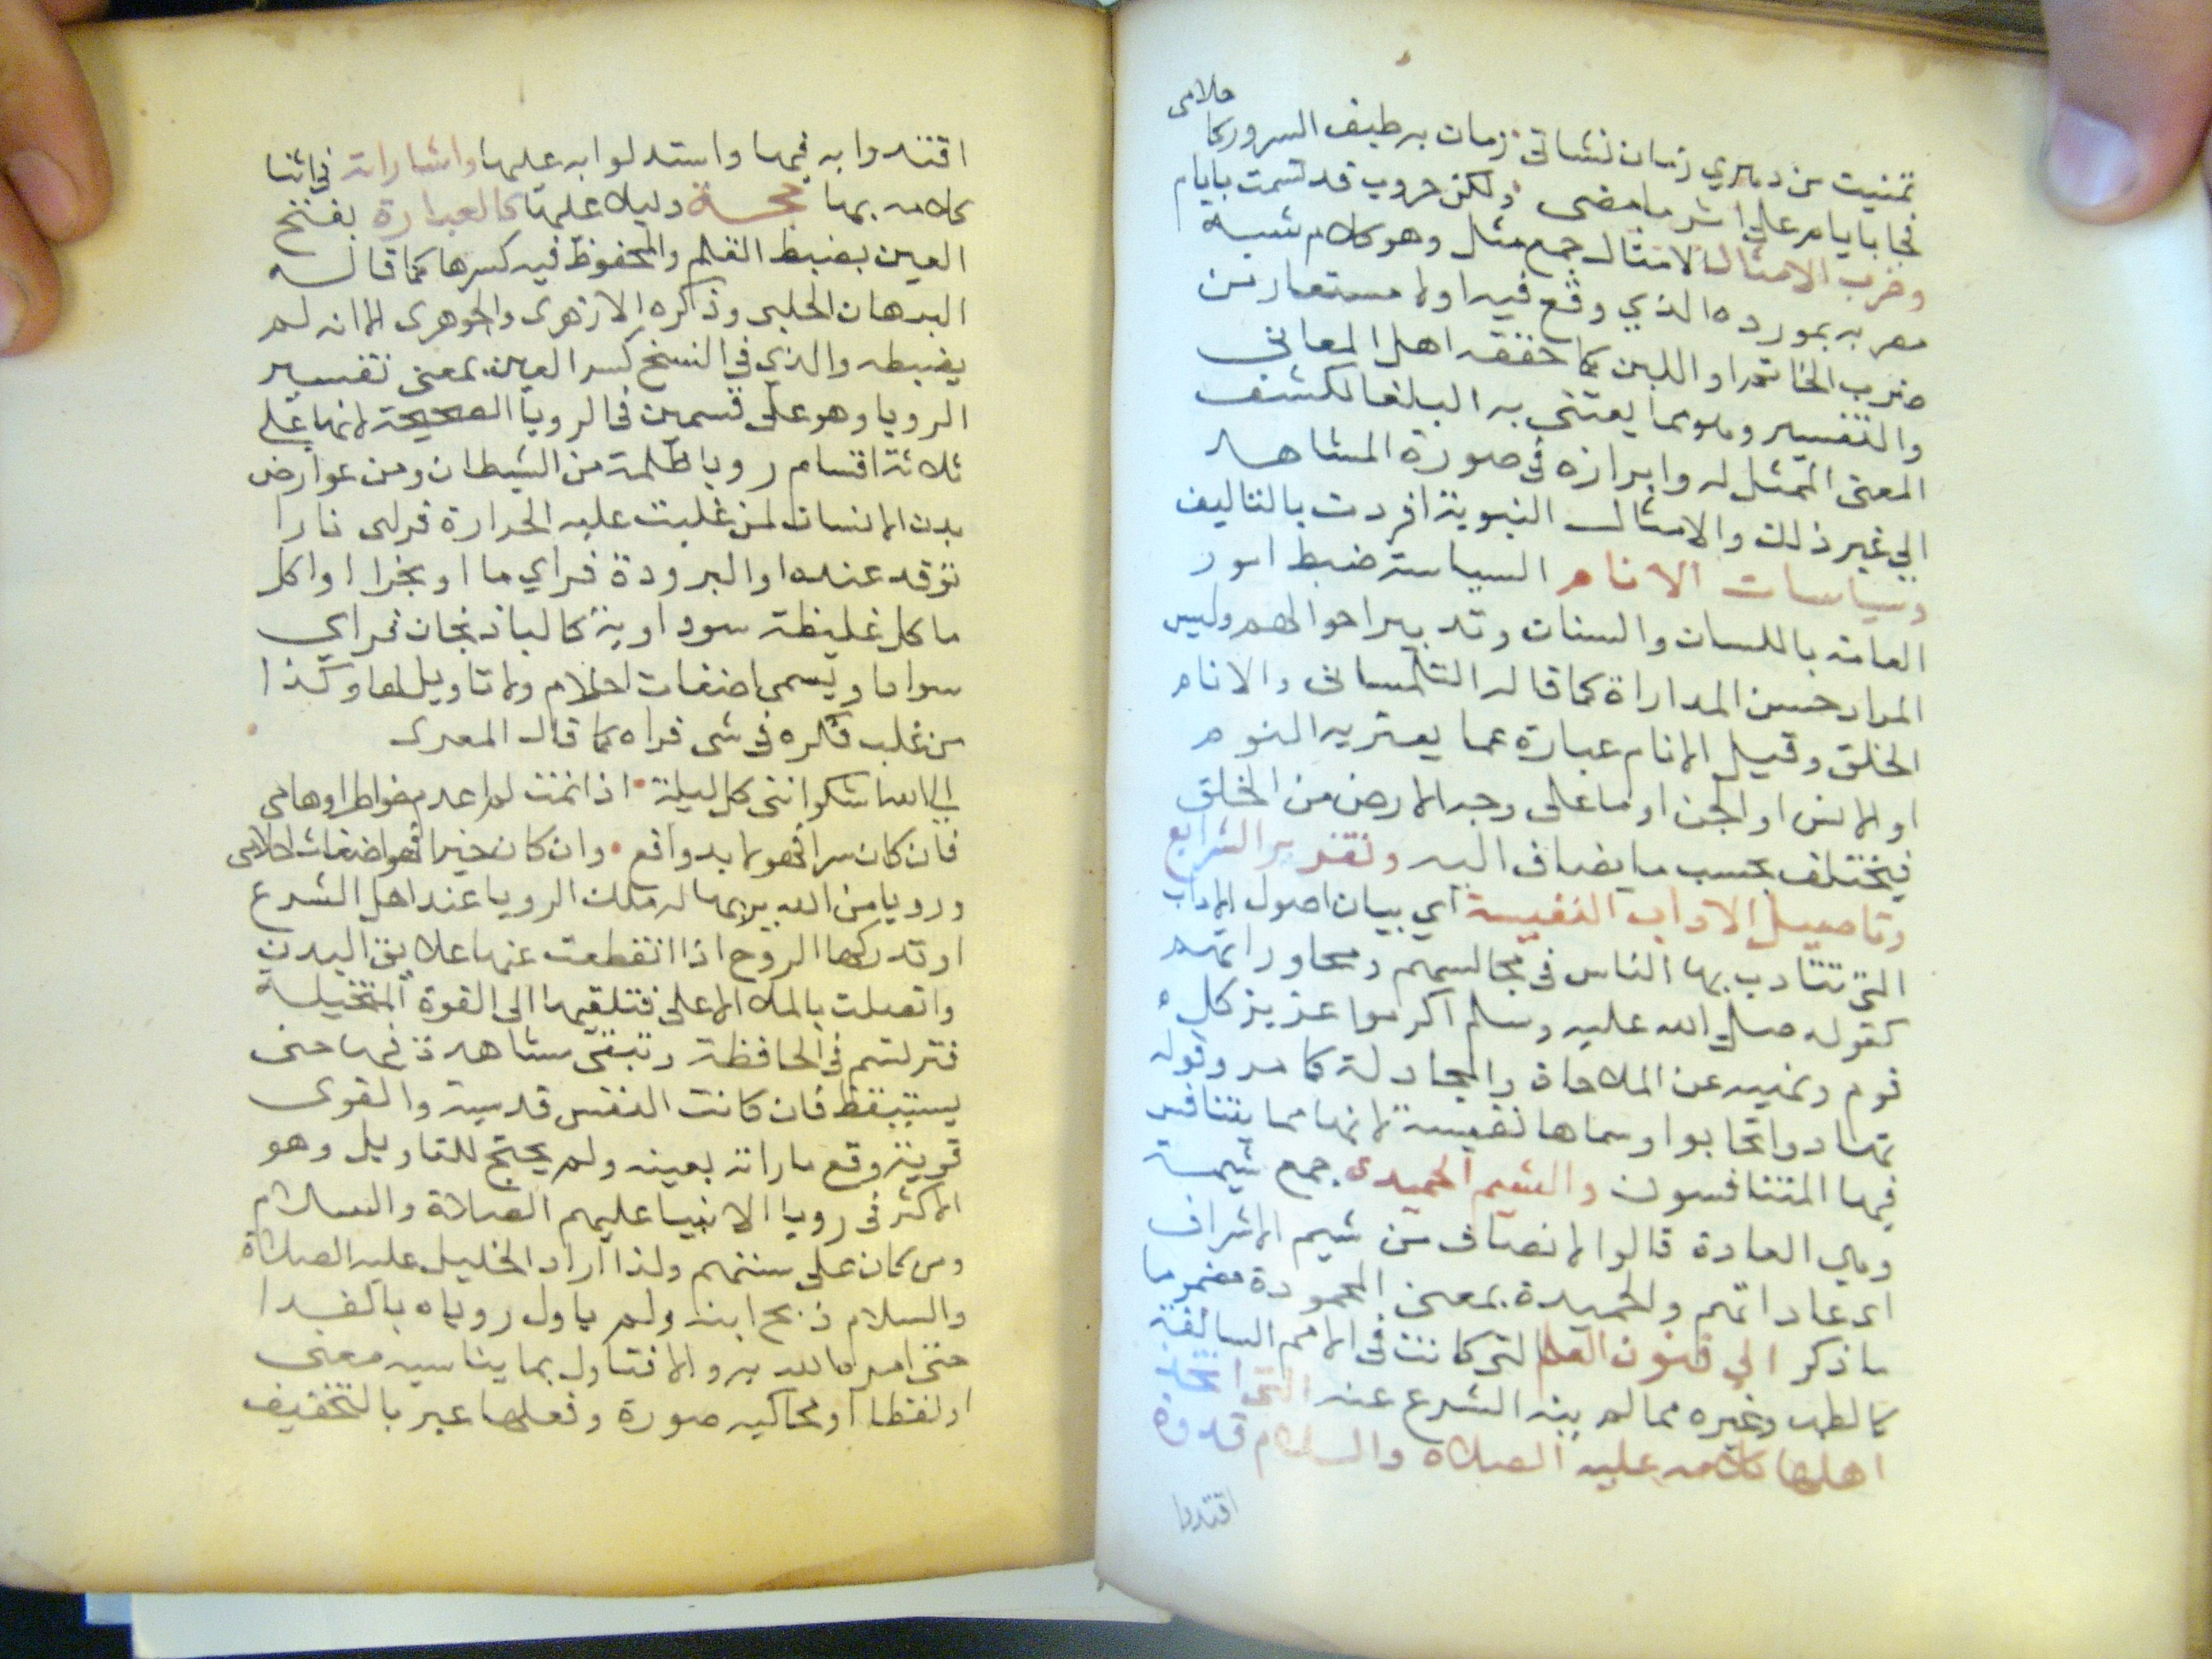 تمنيت من دهري زمان نشاتي زمان به طيف السرور كا حلامى
فجا بايام على اثر ما مضى ولكن حروب قد تسمت بايام
وضرب الامثال الامثال جمع مثل وهو كلام شبه
مضربه بمورده الذي وقع فيه اولا مستعار من
ضرب الخاتم او اللبن كما حققه اهل المعاني
والتفسير وهو مما يعتني به البلغا لكشف
المعنى الممثل له وابرازه في صورة المشاهد
الي غير ذلك والامثال النبوية افردت بالتاليف
وسياسات الانام السياسة ضبط امور
العامة باللسان والسنان وتدبير احوالهم وليس
المراد حسن المداراة كما قاله التلمسانى والانام
الخلق وقيل الانام عبارة عما يعتريه النوم
او الانس او الجن او ما على وجه الارض من الخلق
فيختلف بحسب ما يضاف اليه وتقرير الشرايع
وتاصيل الاداب النفيسة اي بيان اصول الاداب
التي تتادب بها الناس في مجالسهم ومحاوراتهم
كقوله صلي الله عليه وسلم اكرموا عزيز كل
قوم ونهيه عن الملاحاة والمجادلة كما مر وقوله
تهادوا تحابوا وسماها نفيسة لانها مما يتنافس
فيها المتنافسون والشيم الحميدة جمع شيمة
وهي العادة قالوا الانصاف من شيم الاشراف
اى عاداتهم والحميدة بمعنى المحمودة مضموما
ما ذكر الي فنون العلم التي كانت في الامم السالفة
كالطب وغيره مما لم ينه الشرع عنه التي اتخذ
اهلها كلامه عليه الصلاة والسلام قدوة
اقتدوا
اقتدوا به فيها واستدلوا به عليها واشاراته في اثنا
كلامه بها حجة دليلا عليها كالعبارة بفتح
العين بضبط القلم والمحفوظ فيه كسرها كما قاله
البرهان الحلبى وذكره الازهرى والجوهرى الا انه لم
يضبطه والذي في النسخ كسر العين بمعنى تفسير
الرويا وهو على قسمين في الرويا الصحيحة لانها علي
ثلاثة اقسام رويا ظلمة من الشيطان ومن عوارض
بدن الانسان لمن غلبت عليه الحرارة فراى نارا
توقد عنده او البرودة فراي ما او بخرا او اكل
ما كل غليظة سوداوية كالباذنجان فراي
سواما ويسمى اضغاث احلام ولا تاويل لها وكذا
من غلب فكره في شى فراه كما قال المعرى
الي الله اشكوا انني كل ليلة اذا نمت لم اعدم خواطر اوهامي
فان كان سرا فهو لا بد واقع وان كان خيرا فهو اضغاث احلامى
ورويا من الله يريها له ملك الرويا عند اهل الشرع
او تدركها الروح اذا انقطعت عنها علايق البدن
واتصلت بالملا الاعلى فتلقيها الى القوة المتخيلة
فترتسم في الحافظة وتبقى مشاهدة فيها حتى
يستيقظ فان كانت النفس قدسية والقوى
قوية وقع ما راته بعينه ولم يحتج للتاويل وهو
الاكثر في رويا الانبيا عليهم الصلاة والسلام
ومن كان على سننهم ولذا اراد الخليل عليه الصلاة
والسلام ذبح ابنه ولم ياول روياه بالفدا
حتى امره الله به والا فتاول بما يناسبه معنى
او لفظا او محاكيه صورة وفعلها عبر بالتخفيف